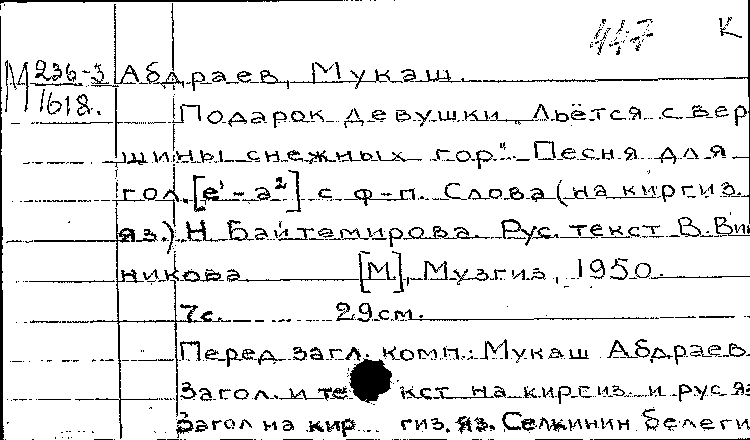 447 К
М 236-3 Абдраев, Мукаш.
1618.
Подарок девушки „Льётся с вер
шины снежных гор". Песня для
гол. [e¹-a²] с ф-п. Слова (на киргиз.
яз.) Н Байтемирова. Рус. текст В. Вин
никова. [М.], Музгиз, 1950.
7с. 29см.
Перед загл. комп.: Мукаш Абдраев.
Загол. и текст на киргиз. и рус яз
Загол на киргиз. яз. Селкинин белеги